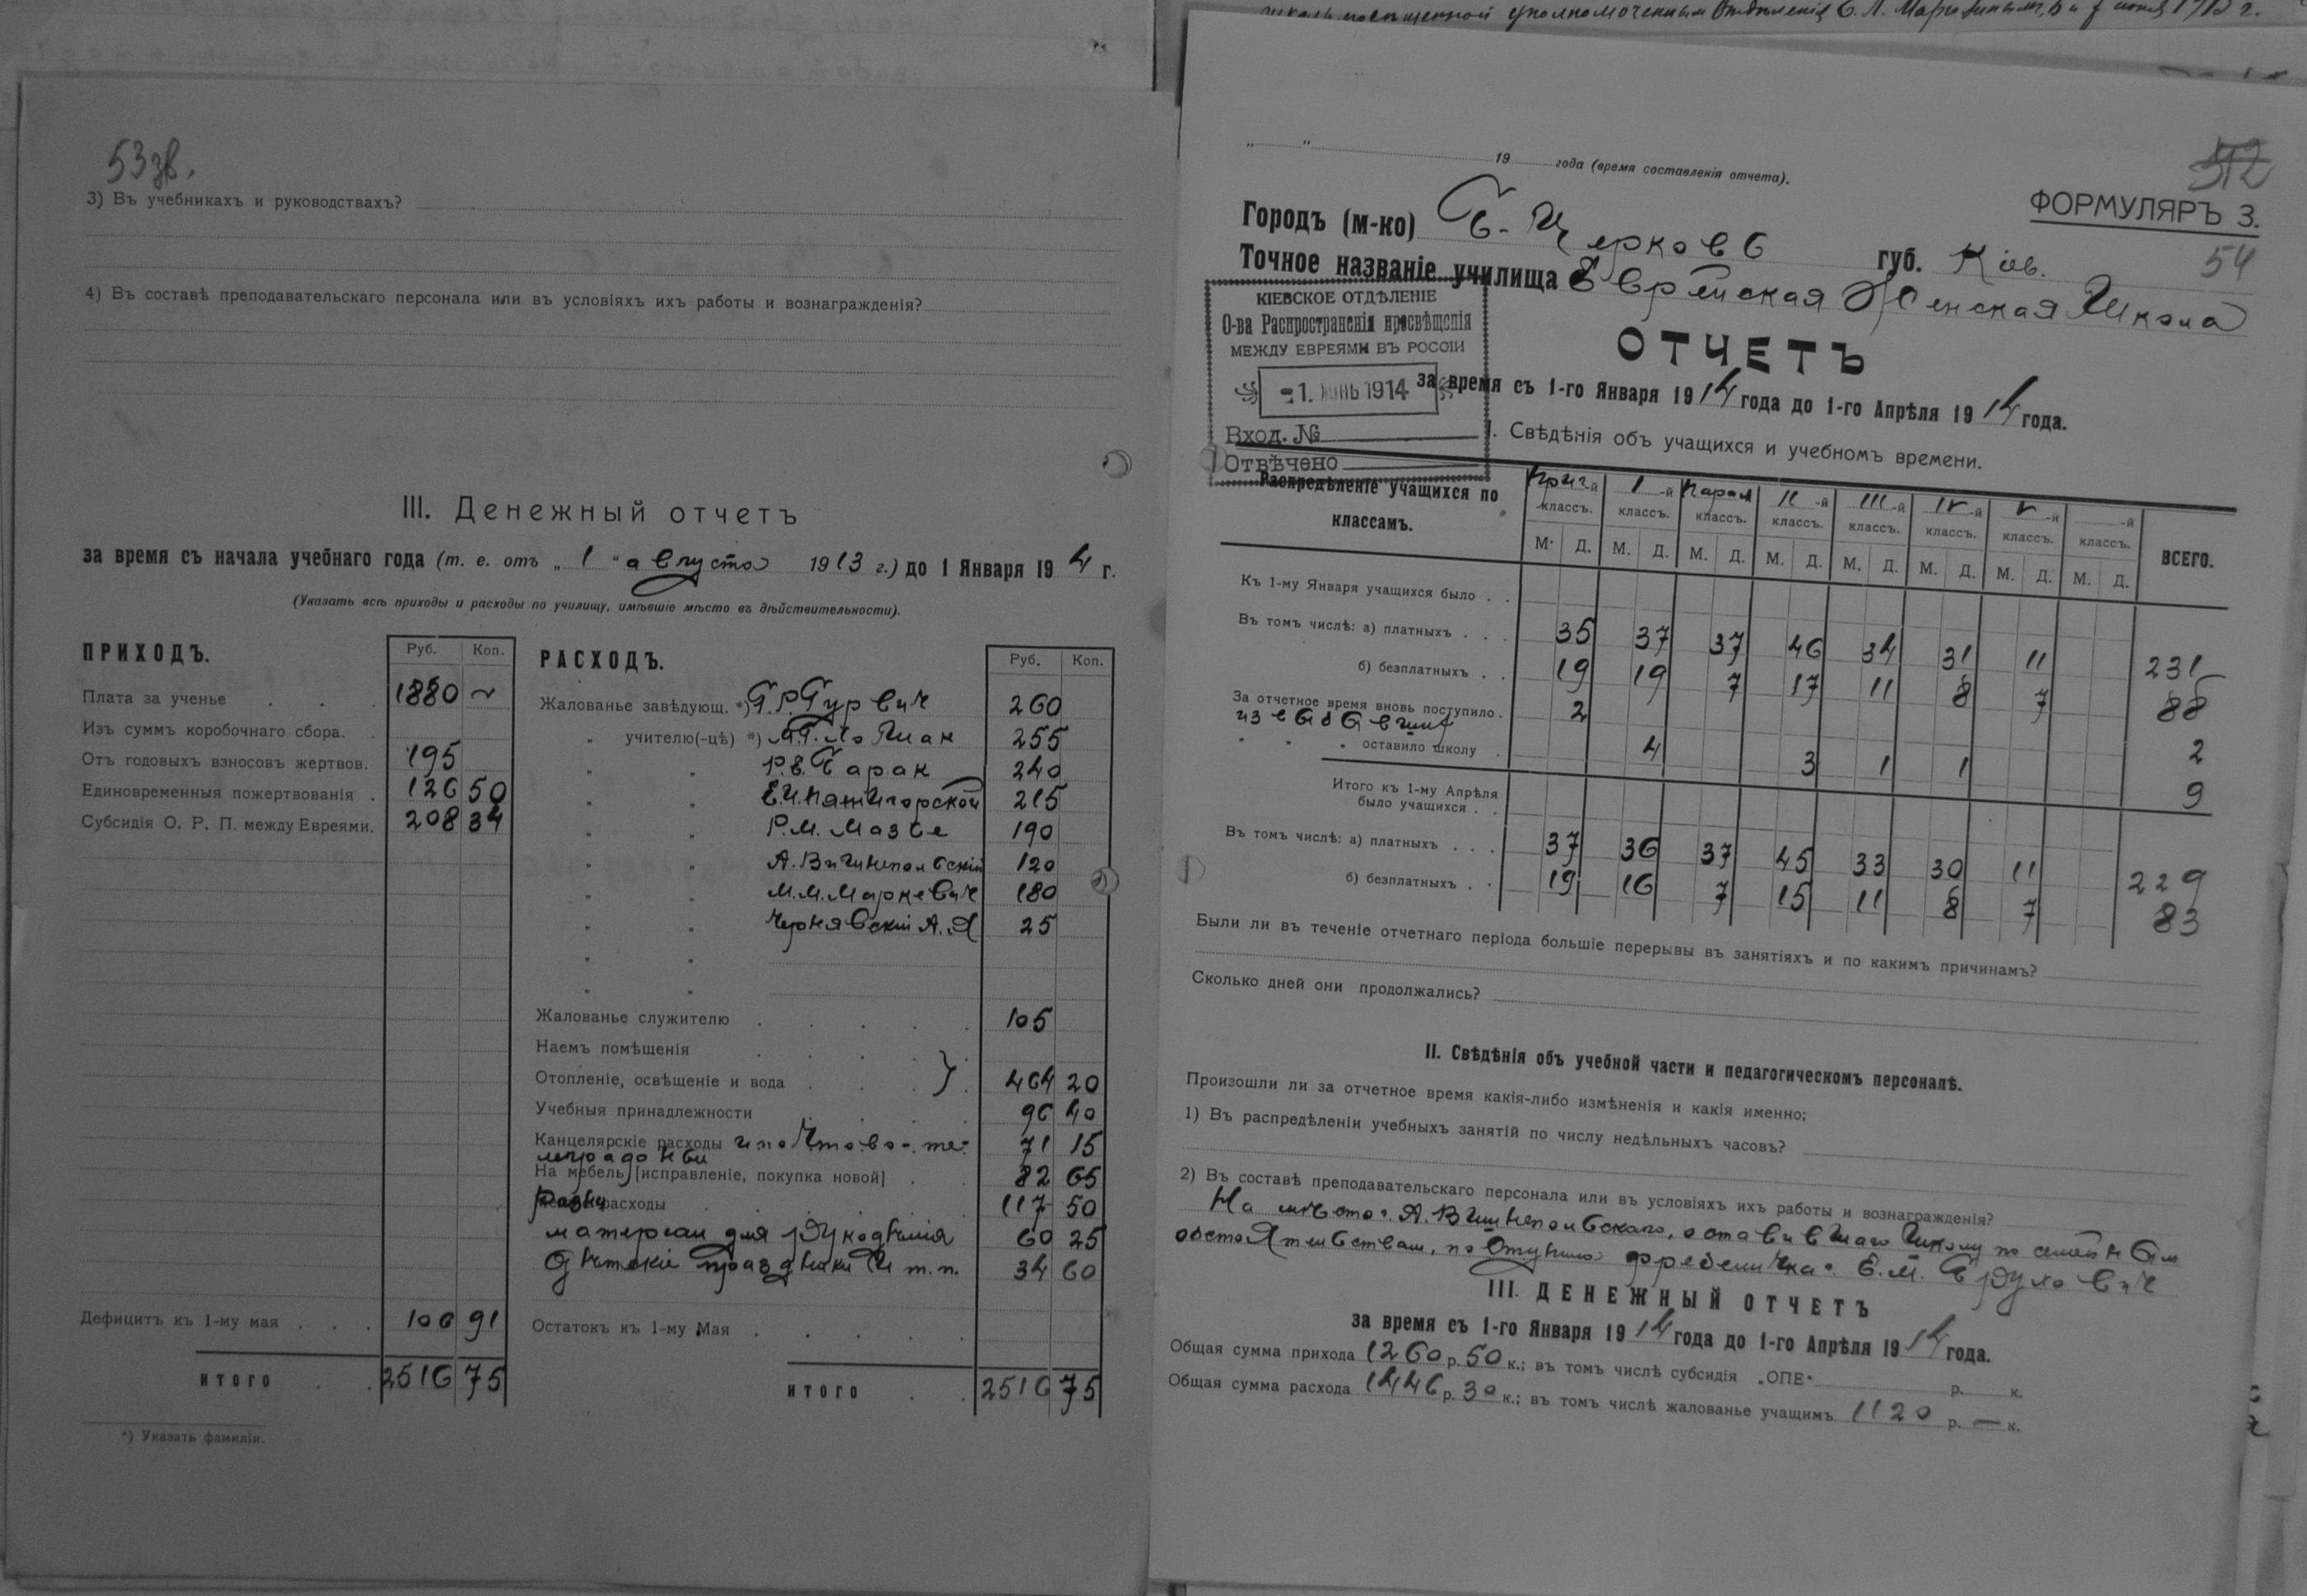 53 зв.
3) Въ учебникахъ и руководствахъ?
4) Въ составѣ преподавательскаго персонала или въ условіяхъ ихъ работы и вознагражденія?
III. Денежный отчетъ
за время съ начала учебнаго года (т. е. отъ „ 1 " августа 1913 г.) до 1 Января 19 4 г.
(Указать всѣ приходы и расходы по училищу, имѣвшіе мѣсто въ дѣйствительности).
ПРИХОДЪ. Руб. Коп.
Плата за ученье 1880 ~
Изъ суммъ коробочнаго сбора.
Отъ годовыхъ взносовъ жертвов. 195
Единовременныя пожертвованія 126 50
Субсидія О. Р. П. между Евреями. 208 34
Дефицитъ къ 1-му мая 106 91
ИТОГО 2516 75
*) Указать фамиліи.
РАСХОДЪ. Руб. Коп.
Жалованье завѣдующ. *) Г.Р. Гурвич 260
" учителю(-цѣ) *) 255
" " Р.Е. Барак 240
" " Е.И. Пятигорской 215
" " Р.М. Мазье 190
" " А. Вишнепольскій 120
" " М.М. Маркевич 180
" " Чернявскій А.Я 25
" "
" "
Жалованье служителю 105
Наемъ помѣщенія
Отопленіе, освѣщеніе и вода } 464 20
Учебныя принадлежности 96 40
Канцелярскіе расходы и почтово-те- 71 15
На мебель [исправленіе, покупка новой] 82 65
Разн расходы 117 50
матеріал для рукодѣлія 60 25
Дѣтскіе праздники и т.п. 34 60
Остатокъ къ 1-му Мая
ИТОГО 2516 75
" " 19 года (время составленія отчета).
512
ФОРМУЛЯРЪ 3.
54
Городъ (м-ко) Б. Церковь губ. Кіев.
Точное названіе училища Еврейская Женская Школа
КІЕВСКОЕ ОТДѢЛЕНІЕ
О-ва Распространенія просвѣщенія
МЕЖДУ ЕВРЕЯМИ ВЪ РОССІИ
1. ІЮНЬ 1914
Вход. №
Отвѣчено
ОТЧЕТЪ
за время съ 1-го Января 1914 года до 1-го Апрѣля 1914 года.
I. Свѣдѣнія объ учащихся и учебномъ времени.
Распредѣленіе учащихся по классамъ. Приг-й классъ. I-й классъ. Парал классъ. II-й классъ. III-й классъ. IV-й классъ. V-й классъ. -й классъ. ВСЕГО.
М. Д. М. Д. М. Д. М. Д. М. Д. М. Д. М. Д. М. Д.
Къ 1-му Января учащихся было
Въ томъ числѣ: а) платныхъ 35 37 37 46 34 31 11 231
б) безплатныхъ 19 19 7 17 11 8 7 88
За отчетное время вновь поступило 2 2
изъ выбывших
" " " оставило школу 4 3 1 1 9
Итого къ 1-му Апрѣля было учащихся
Въ томъ числѣ: а) платныхъ 37 36 37 45 33 30 11 229
б) безплатныхъ 19 16 7 15 11 8 7 83
Были ли въ теченіе отчетнаго періода большіе перерывы въ занятіяхъ и по какимъ причинамъ?
Сколько дней они продолжались?
II. Свѣдѣнія объ учебной части и педагогическомъ персоналѣ.
Произошли ли за отчетное время какія-либо измѣненія и какія именно;
1) Въ распредѣленіи учебныхъ занятій по числу недѣльныхъ часовъ?
2) Въ составѣ преподавательскаго персонала или въ условіяхъ ихъ работы и вознагражденія?
На мѣсто А. Вишнепольскаго, оставившаго школу по семейным
обстоятельствам, поступила фребеличка Е.М.
III. ДЕНЕЖНЫЙ ОТЧЕТЪ
за время съ 1-го Января 1914 года до 1-го Апрѣля 1914 года.
Общая сумма прихода 1260 р. 50 к.; въ томъ числѣ субсидія „ОПЕ" р. к.
Общая сумма расхода 1446 р. 30 к.; въ томъ числѣ жалованье учащимъ 1120 р. — к.